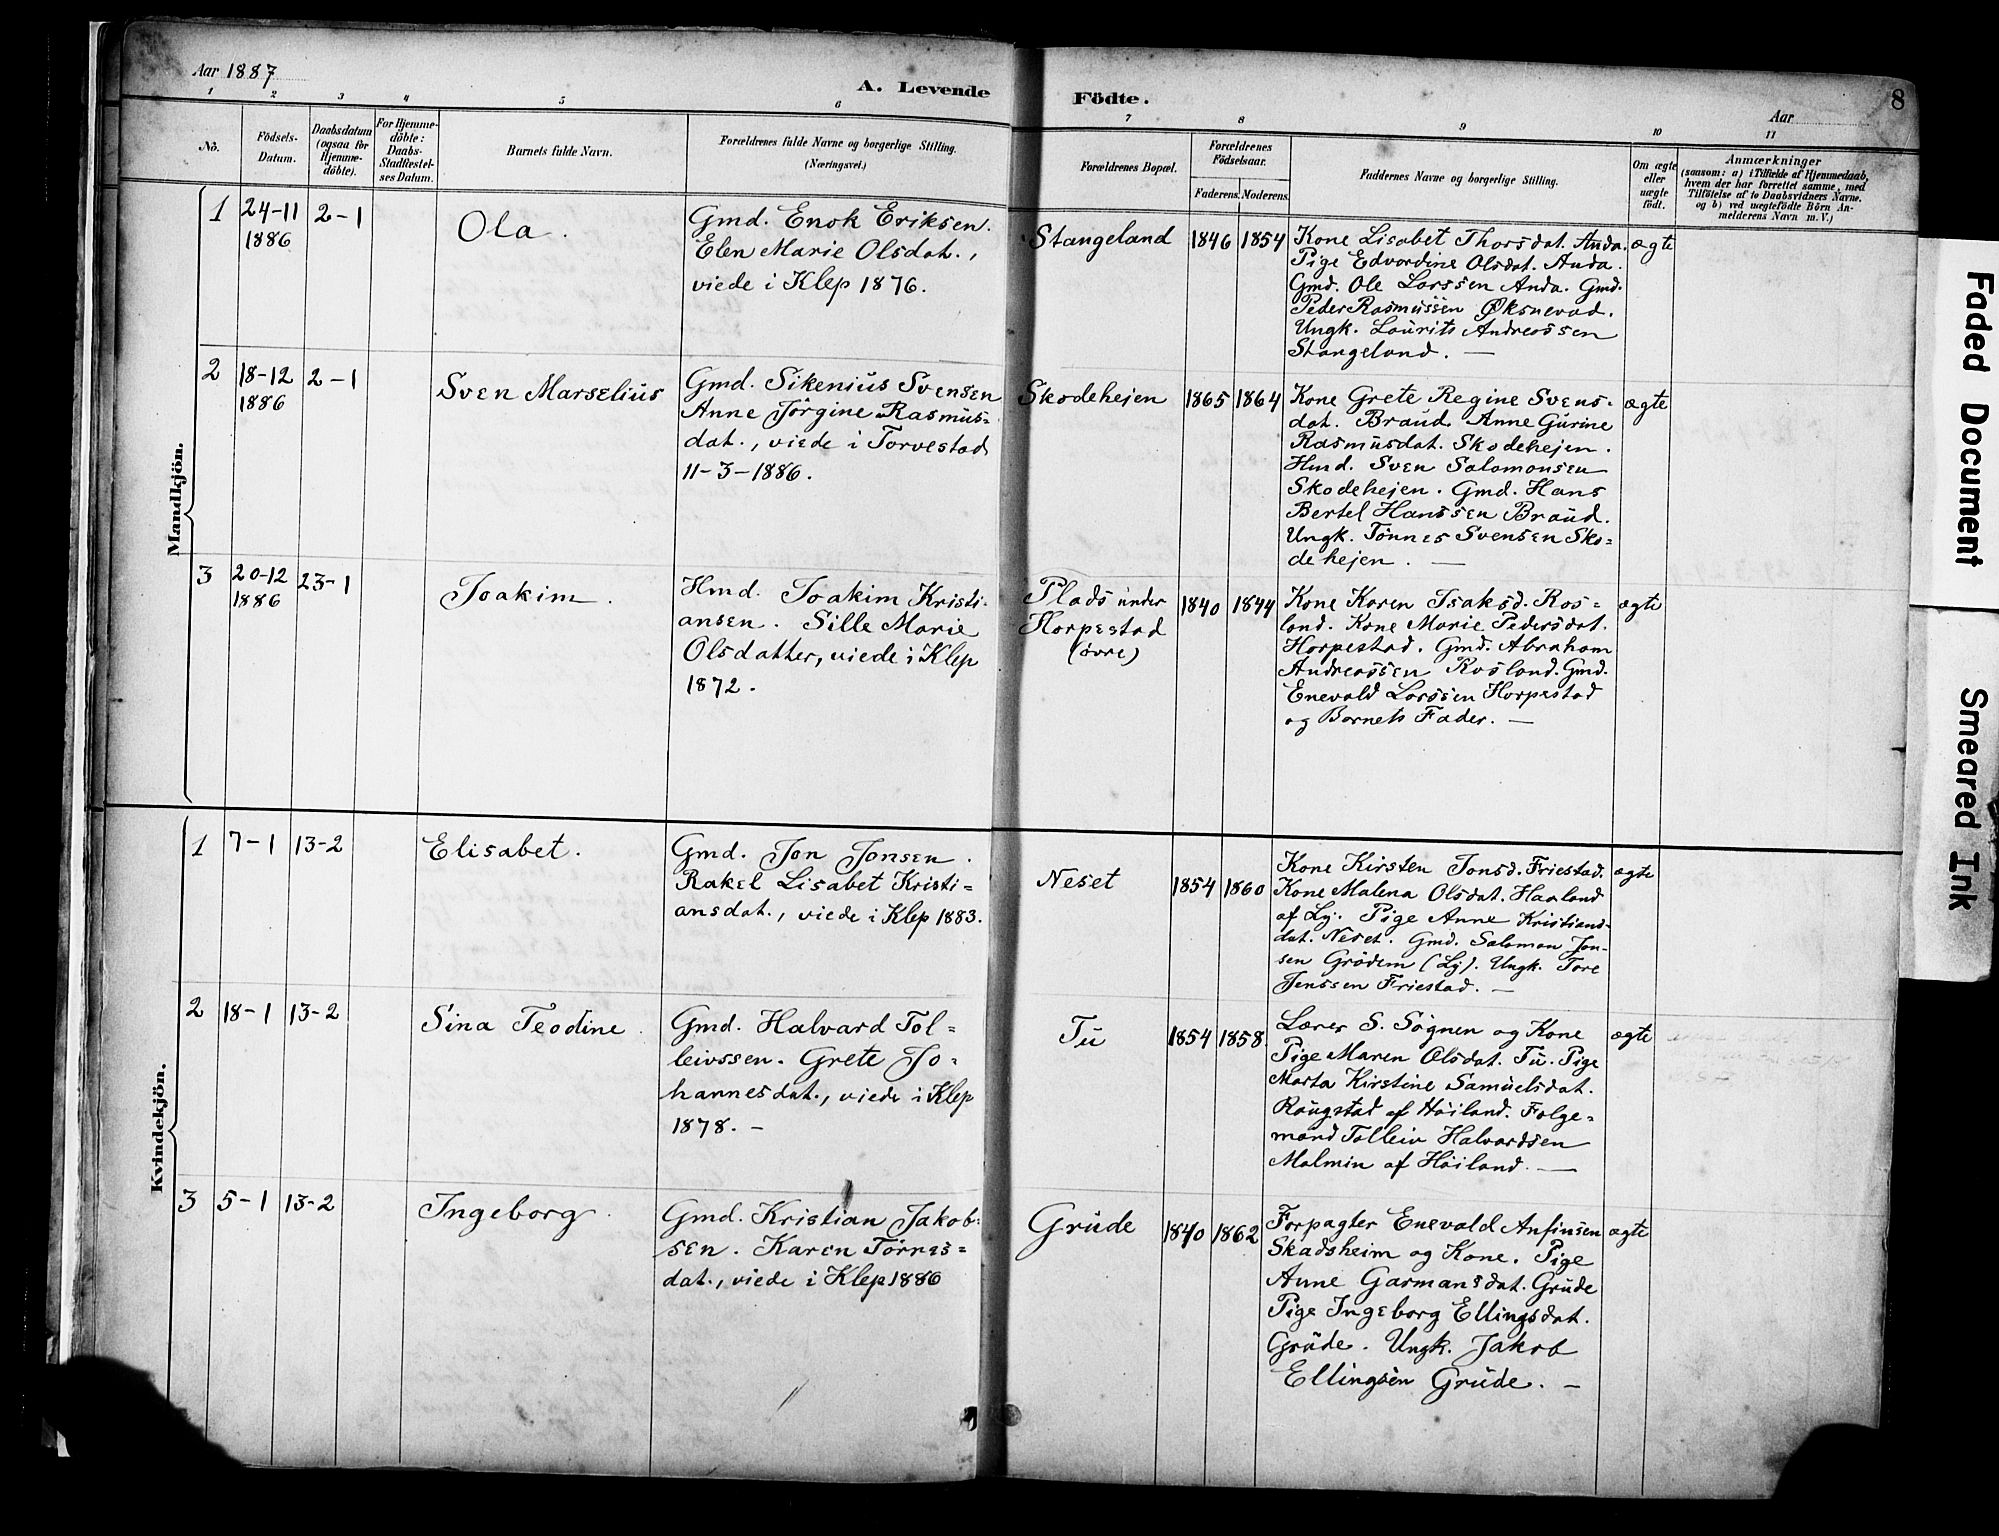 Aar 1887
A. Levende Födte.
Aar
8
1 2 3 4 5 6 7 8 9 10 11
No.
Födsels-
Datum.
Daabsdatum
(ogsaa for
Hjemme-
döbte).
For Hjemme-
döbte:
Daabs-
Stadfæstel-
ses Datum.
Barnets fulde Navn.
Forældrenes fulde Navne og borgerlige Stilling.
(Næringsvei.)
Forældrenes Bopæl.
Forældrenes
Födselsaar.
Faderens. Moderens.
Faddernes Navne og borgerlige Stilling.
Om ægte
eller
uægte
født.
Anmærkninger
(saasom: a) i Tilfælde af Hjemmedaab,
hvem der har forrettet samme, med
Tilföielse af to Daabsvidners Navne.
og b) ved uægtefödte Börn An-
melderens Navn m. V.)
Mandkjön.
1
24-11
1886
2-1
Ola.
Gmd. Enok Eriksen.
Elen Marie Olsdat.,
viede i Klep 1876.
Stangeland
1846
1854
Kone Lisabet Thorsdat. Anda.
Pige Edvardine Olsdat. Anda.
Gmd. Ole Larssen Anda. Gmd.
Peder Rasmussen Øksnevad.
Ungk. Laurits Andreassen
Stangeland. —
ægte
2
18-12
1886
2-1
Sven Marselius
Gmd. Sikenius Svensen
Anne Jörgine Rasmus=
dat., viede i Torvestad
11-3-1886.
Skodehejen
1865
1864
Kone Grete Regine Svens=
dat. Braud. Anne Gurine
Rasmusdat. Skodehejen.
Hmd. Sven Salomonsen
Skodehejen. Gmd. Hans
Bertel Hanssen Braud.
Ungk. Tønnes Svensen Sko=
dehejen. —
ægte
3
20-12
1886
23-1
Joakim.
Hmd. Joakim Kristi-
ansen. Sille Marie
Olsdatter, viede i Klep
1872.
Plads under
Horpestad
(övre)
1840
1844
Kone Karen Isaksd. Ros=
land. Kone Marie Pedersdat.
Horpestad. Gmd. Abraham
Andreassen Rosland. Gmd.
Enevald Larssen Horpestad
og Barnets Fader. —
ægte
Kvindekjön.
1
7-1
13-2
Elisabet.
Gmd. Jon Jonsen.
Rakel Lisabet Kristi=
ansdat., viede i Klep 1883.
Neset
1854
1860
Kone Kirsten Jonsd. Friestad.
Kone Malena Olsdat. Haaland
af Lj. Pige Anne Kristians-
dat. Neset. Gmd. Salomon Jon-
sen Grödem (Lj). Ungk. Tore
Jenssen Friestad. —
ægte
2
18-1
13-2
Sina Teodine.
Gmd. Halvard Tol=
leivssen. Grete Jo=
hannesdat., viede i Klep
1878. —
Tu
1854
1858
Lærer S. Søgnen og Kone
Pige Maren Olsdat. Tu. Pige
Marta Kirstine Samuelsdat.
Raugstad af Höiland. Folge=
mand Tolleiv Halvardsen
Malmin af Höiland. —
ægte
3
5-1
13-2
Ingeborg.
Gmd. Kristian Jakob-
sen. Karen Törres=
dat., viede i Klep 1886
Grude
1840
1862
Forpagter Enevald Anfinsen
Skadsheim og Kone. Pige
Anne Garmansdat. Grude
Pige Ingeborg Ellingsdat.
Grude. Ungk. Jakob
Ellingsen Grude. —
ægte
Faded Document
Smeared Ink